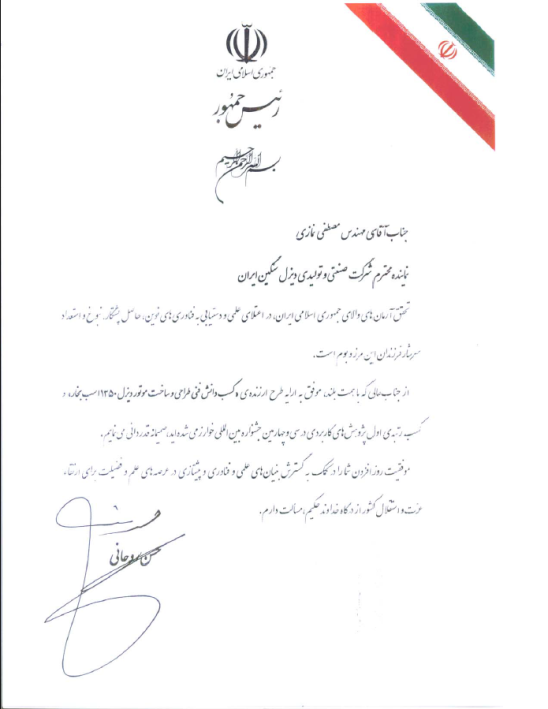 جمهوری اسلامی ایران
رئیس جمهور
بسم الله الرحمن الرحیم
جناب آقای مهندس مصطفی نمازی
نماینده محترم شرکت صنعتی و تولیدی دیزل سنگین ایران
تحقق آرمان های والای جمهوری اسلامی ایران، در اعتلای علمی و دستیابی به فناوری های نوین، حاصل پشتکار، نبوغ و استعداد
سرشار فرزندان این مرز و بوم است.
از جناب عالی که با همت بلند، موفق به ارایه طرح ارزنده ی «کسب دانش فنی طراحی و ساخت موتور دیزل ۱۳۵۰ اسب بخار» و
کسب رتبه ی اول پژوهش های کاربردی در سی و چهارمین جشنواره بین المللی خوارزمی شده اید، صمیمانه قدردانی می نمایم.
موفقیت روزافزون شما را در کمک به گسترش بنیان های علمی و فناوری و پیشتازی در عرصه های علم و فضیلت برای ارتقاء
عزت و استقلال کشور از درگاه خداوند حکیم، مسالت دارم.
حسن روحانی